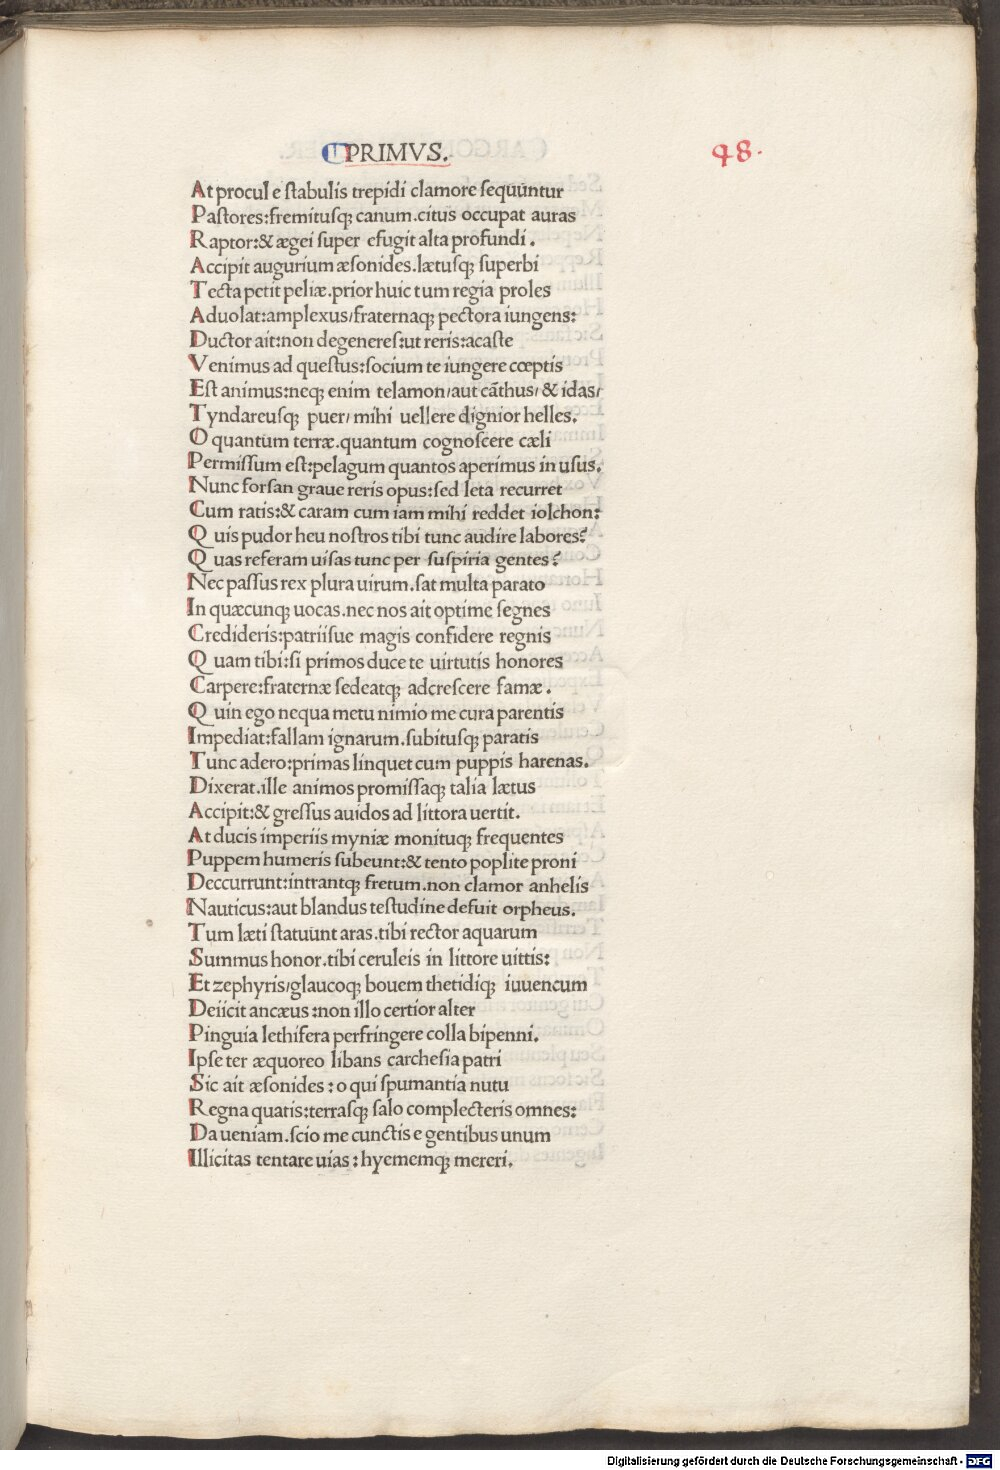 PRIMVS. 48.
At procul e ſtabulis trepidi clamore ſequuntur
Paſtores:fremituſqꝫ canum.citus occupat auras
Raptor:& ægei ſuper efugit alta profundi.
Accipit augurium æſonides.lætuſqꝫ ſuperbi
Tecta petit peliæ.prior huic tum regia proles
Aduolat:amplexus/fraternaqꝫ pectora iungens:
Ductor ait:non degeneres:ut reris:acaſte
Venimus ad queſtus:ſocium te iungere cœptis
Eſt animus:neqꝫ enim telamon/aut cāthus/& idas/
Tyndareuſqꝫ puer/mihi uellere dignior helles.
O quantum terræ.quantum cognoſcere cæli
Permiſſum eſt:pelagum quantos aperimus in uſus.
Nunc forſan graue reris opus:ſed leta recurret
Cum ratis:& caram cum iam mihi reddet iolchon:
Quis pudor heu noſtros tibi tunc audire labores?
Quas referam uiſas tunc per ſuſpiria gentes?
Nec paſſus rex plura uirum.ſat multa parato
In quæcunqꝫ uocas.nec nos ait optime ſegnes
Credideris:patriiſue magis confidere regnis
Quam tibi:ſi primos duce te uirtutis honores
Carpere:fraternæ ſedeatqꝫ adcreſcere famæ.
Quin ego nequa metu nimio me cura parentis
Impediat:fallam ignarum.ſubituſqꝫ paratis
Tunc adero:primas linquet cum puppis harenas.
Dixerat.ille animos promiſſaqꝫ talia lætus
Accipit:& greſſus auidos ad littora uertit.
At ducis imperiis myniæ monituqꝫ frequentes
Puppem humeris ſubeunt:& tento poplite proni
Deccurrunt:intrantqꝫ fretum.non clamor anhelis
Nauticus:aut blandus teſtudine defuit orpheus.
Tum læti ſtatuunt aras.tibi rector aquarum
Summus honor.tibi ceruleis in littore uittis:
Et zephyris/glaucoqꝫ bouem thetidiqꝫ iuuencum
Deiicit ancæus:non illo certior alter
Pinguia lethifera perfringere colla bipenni.
Ipſe ter æquoreo libans carcheſia patri
Sic ait æſonides:o qui ſpumantia nutu
Regna quatis:terraſqꝫ ſalo complecteris omnes:
Da ueniam.ſcio me cunctis e gentibus unum
Illicitas tentare uias:hyememqꝫ mereri.
Digitalisierung gefördert durch die Deutsche Forschungsgemeinschaft - DFG